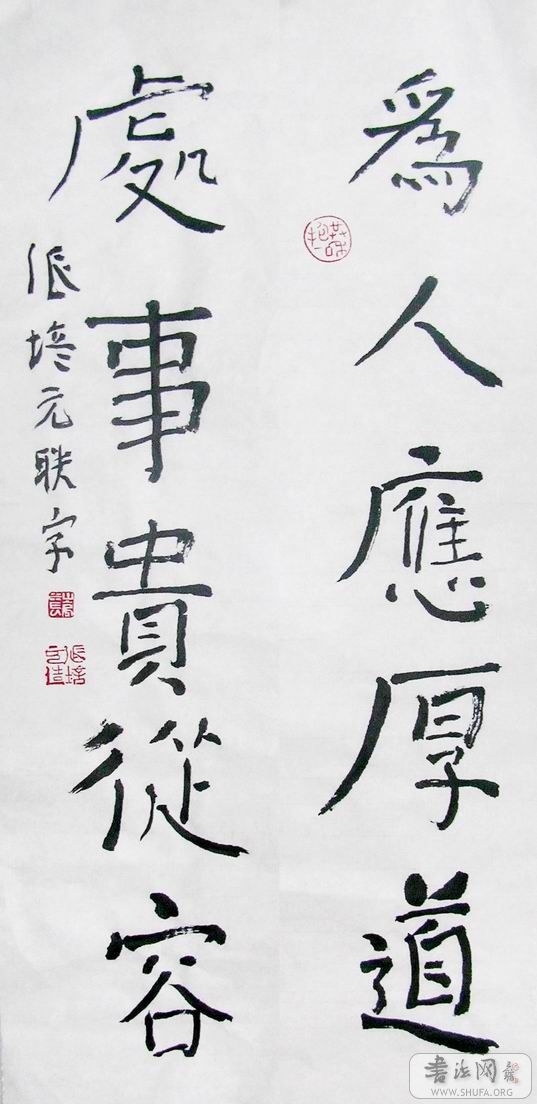 爲人應厚道
處事貴從容
張培元聯字
書法网
WWW.SHUFA.ORG